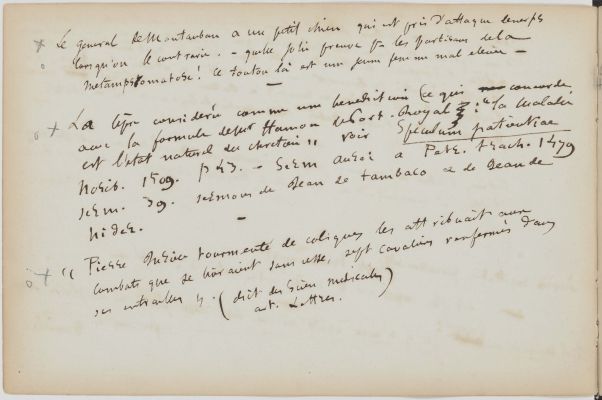 Le general de Montauban a un petit chien qui est pris d'attaque de nerfs
lorsqu'on le contrarie. - quelle jolie preuve pr les partisans de la
metampsomatose! ce toutou là est une jeune femme mal élevée -
La lèpre considérée comme une bénédiction (ce qui concorde
avec la formule de Mr Hamon de Port-Royal : "la maladie
est l'état naturel du chretien" voir Speculum patientiae
Norib. 1509. p 43. -
serm. 39. sermons de Jean de Tambaco & de Jean de
Nider.
" Pierre Jurieu tourmenté de coliques les attribuait aux
combats que se livraient sans cesse, sept cavaliers renfermés dans
ses entrailles ". (dict. des scien medicales)
art. Lettres.